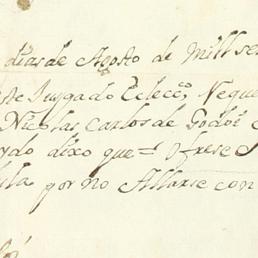 dias de Agosto de Mill se
te Juzgado Eclecco, Vegue
Nicolas Carlos de Godoi
do dixo que = Ofrese
por no Allarse con